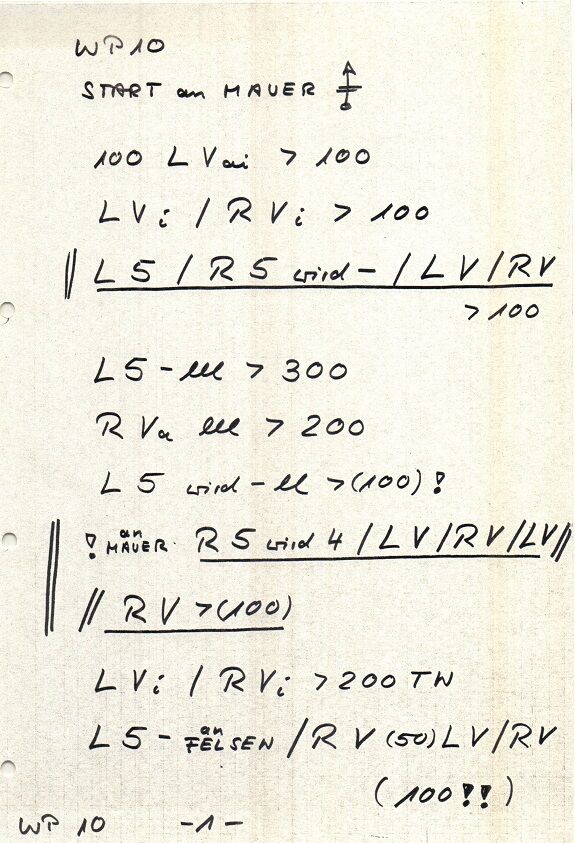 WP 10
START an MAUER
100 L Vai > 100
L Vi / R Vi > 100
|| L 5 / R 5 wird - / L V / R V
> 100
L 5 - lll > 300
R Va lll > 200
L 5 wird - ll > (100) !
! an MAUER. R 5 wird 4 / L V / R V / L V //
// R V > (100)
L Vi / R Vi > 200 TW
L 5 - an FELSEN / R V (50) L V / R V
(100 !!)
WP 10 - 1 -